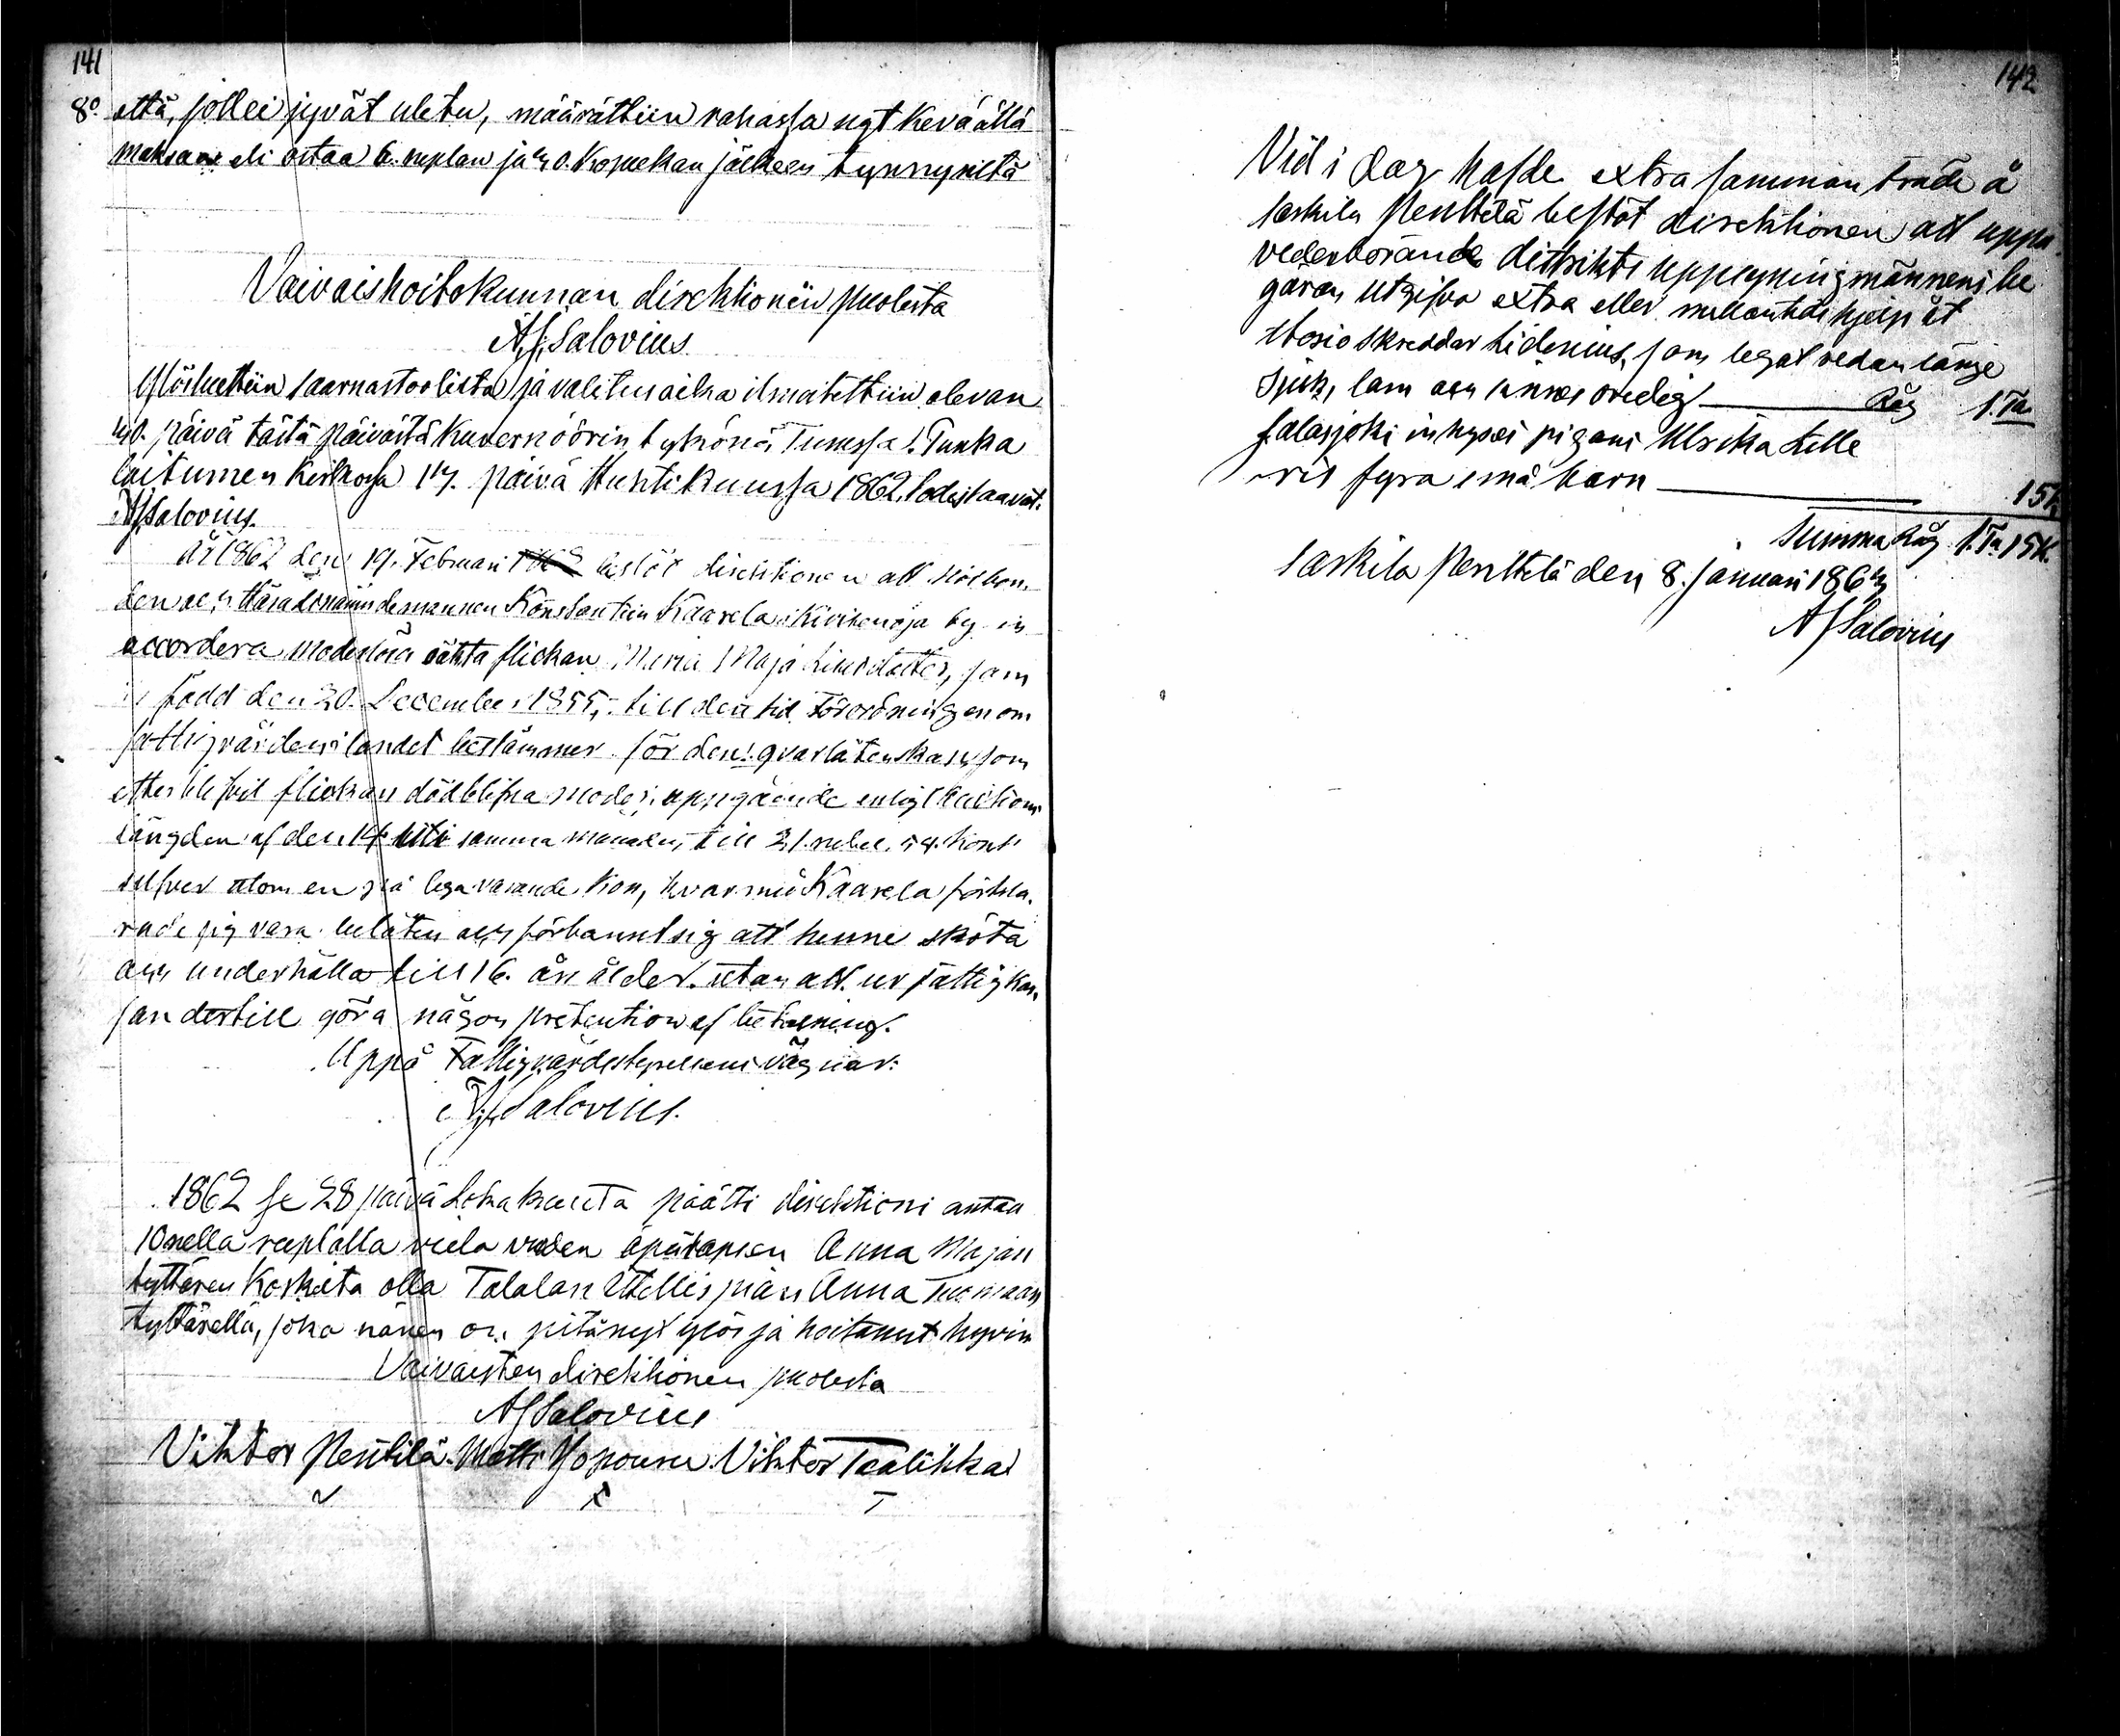 141
8:o että, jollei jyvät uletu, määrättiin rahassa nyt keväällä
maksaa eli ostaa 6. ruplan ja 50. Kopekan jälkeen tynnyristä
Vaivaishoitokunnan direktionin puolesta
A. J. Salovius
Ylösluettiin saarnastoolista ja valitus aika ilmoitettiin olevan
30. päivä tästä päivästä Kuvernöörin tykönä Turussa. Punka
laitumen Kirkossa 17. päivä Huhtikuussa 1862. Todistaavat.
AJSalovius.
År 1862 den 19. Februari beslöt direktionen att
den Nämndemannen Konstantin Kaarela i Kivikenoja by in
accordera moderlösa oäkta flickan Maria Maja dotter, som
är född den 20. December 1855, till den tid Förordningen om
fattigvården i landet bestämmer för den qvarlåtenskap som
efterblifvit flickans dödblifna moder, uppgående enligt Auctions
längden af den 14 samma månad, till 21. rubel. kop.
silfver utom en på lega varande ko, hvarmed Kaarela förkla-
rade sig vara belåten och förbannt sig att henne sköta
och underhålla till 16. års ålder utan att ur fattigkas-
san dertill göra någon prétention af betalning.
Uppå Fattigvårdsstyrelsens vägnar:
A. J. Salovius.
1862 se 28 päivä Lokakuuta päätti direktioni antaa
10nellä ruplalla vielä vuoden äpärälapsen Anna Majan
tyttären Koskesta olla Talalan Itellispiän Anna Tuomaan
tyttärellä, joka hänen on pitänyt ylös ja hoitanut hyvin
Vaivaisten direktionen puolesta
AJSalovius
Vihtor Penttilä. Matti Yöpouru. Vihtor Taalikka
142
Vid i dag hafde extra sammanträde å
Laskila Penttilä beslöt direktionen att uppå
vederbörande distrikts uppsyningsmännens be
gäran utgifva extra eller hjelp åt
skreddar Lidenius, som legat redan länge
sjuk, lam och oredig Råg 1. Ta.
Salasjoki inhyses pigan Ulrika Lille
vid fyra små barn 15 k.
Summa Råg 1. Ta. 15 k.
Laskila Penttilä den 8. januari 1863
AJSalovius